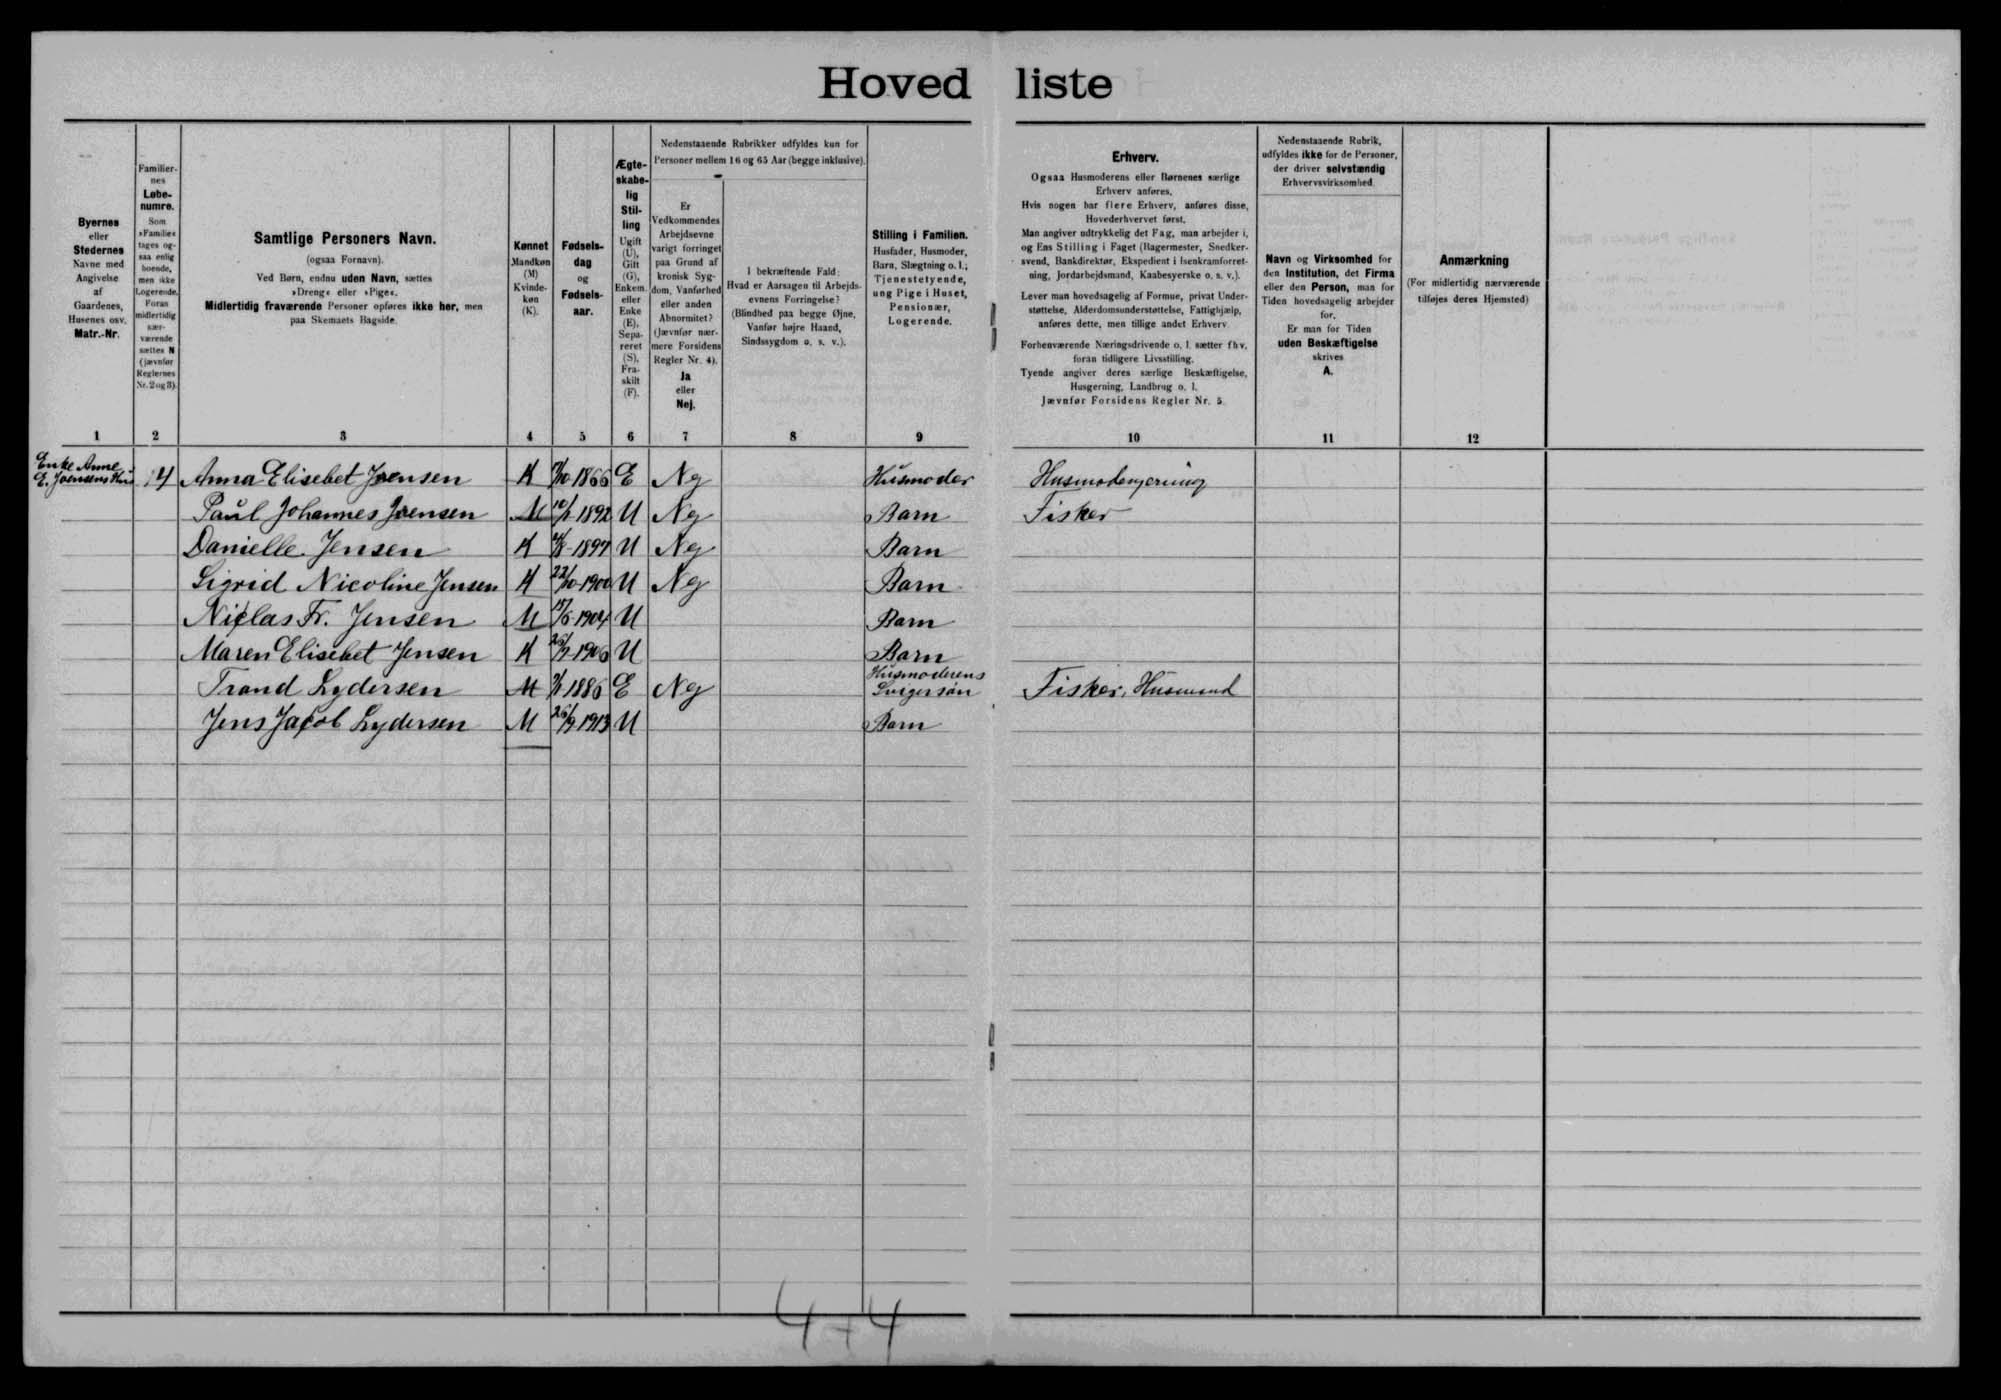 Hovedliste
Byernes
eller
Stedernes
Navne med
Angivelse
af
Gaardenes,
Husenes osv.
Matr.-Nr.
Familier-
nes
Løbe-
numre.
Som
»Familie«
tages og-
saa enlig
boende,
men ikke
Logerende.
Foran
midlertidig
nær-
værende
sættes N
(jævnfør
Reglernes
Nr. 2 og 3).
Samtlige Personers Navn.
(ogsaa Fornavn).
Ved Børn, endnu uden Navn, sættes
»Dreng« eller »Pige«.
Midlertidig fraværende Personer opføres ikke her, men
paa Skemaets Bagside.
Kønnet
Mandkøn
(M)
Kvinde-
køn
(K).
Fødsels-
dag
og
Fødsels-
aar.
Ægte-
skabe-
lig
Stil-
ling
Ugift
(U),
Gift
(G),
Enkem.
eller
Enke
(E),
Sepa-
reret
(S),
Fra-
skilt
(F).
Nedenstaaende Rubrikker udfyldes kun for
Personer mellem 16 og 65 Aar (begge inklusive).
Er
Vedkommendes
Arbejdsevne
varigt forringet
paa Grund af
kronisk Syg-
dom, Vanførhed
eller anden
Abnormitet?
(Jævnfør nær-
mere Forsidens
Regler Nr. 4).
Ja
eller
Nej.
I bekræftende Fald:
Hvad er Aarsagen til Arbejds-
evnens Forringelse?
(Blindhed paa begge Øjne,
Vanfør højre Haand,
Sindssygdom o. s. v.).
Stilling i Familien.
Husfader, Husmoder,
Barn, Slægtning o. l.;
Tjenestetyende,
ung Pige i Huset,
Pensionær,
Logerende.
Erhverv.
Ogsaa Husmoderens eller Børnenes særlige
Erhverv anføres.
Hvis nogen har flere Erhverv, anføres disse,
Hovederhvervet først.
Man angiver udtrykkelig det Fag, man arbejder i,
og Ens Stilling i Faget (Bagermester, Snedker-
svend, Bankdirektør, Ekspedient i Isenkramforret-
ning, Jordarbejdsmand, Kaabesyerske o. s. v.).
Lever man hovedsagelig af Formue, privat Under-
støttelse, Alderdomsunderstøttelse, Fattighjælp,
anføres dette, men tillige andet Erhverv.
Forhenværende Næringsdrivende o. l. sætter fhv.
foran tidligere Livsstilling.
Tyende angiver deres særlige Beskæftigelse,
Husgerning, Landbrug o. l.
Jævnfør Forsidens Regler Nr. 5.
Nedenstaaende Rubrik,
udfyldes ikke for de Personer,
der driver selvstændig
Erhvervsvirksomhed.
Navn og Virksomhed for
den Institution, det Firma
eller den Person, man for
Tiden hovedsagelig arbejder
for.
Er man for Tiden
uden Beskæftigelse
skrives
A.
Anmærkning
(For midlertidig nærværende
tilføjes deres Hjemsted)
1 2 3 4 5 6 7 8 9 10 11 12
Enke Anne
E. Joensens Hus 14 Anna Elisebet Joensen K /10 1866 E Nej Husmoder Husmodergerning
Paul Johannes Joensen M 1892 U Nej Barn Fisker
Danielle Jensen K 1897 U Nej Barn
Sigrid Nicoline Jensen K 22/10-1900 U Nej Barn
Niclas Fr. Jensen M 1904 U Barn
Maren Elisebet Jensen K 1906 U Barn
Trond Lydersen M 1886 E Nej Husmoderens
Svigersøn Fisker, Husmand
Jens Jacob Lydersen M 26/9-1913 U Barn
4+4